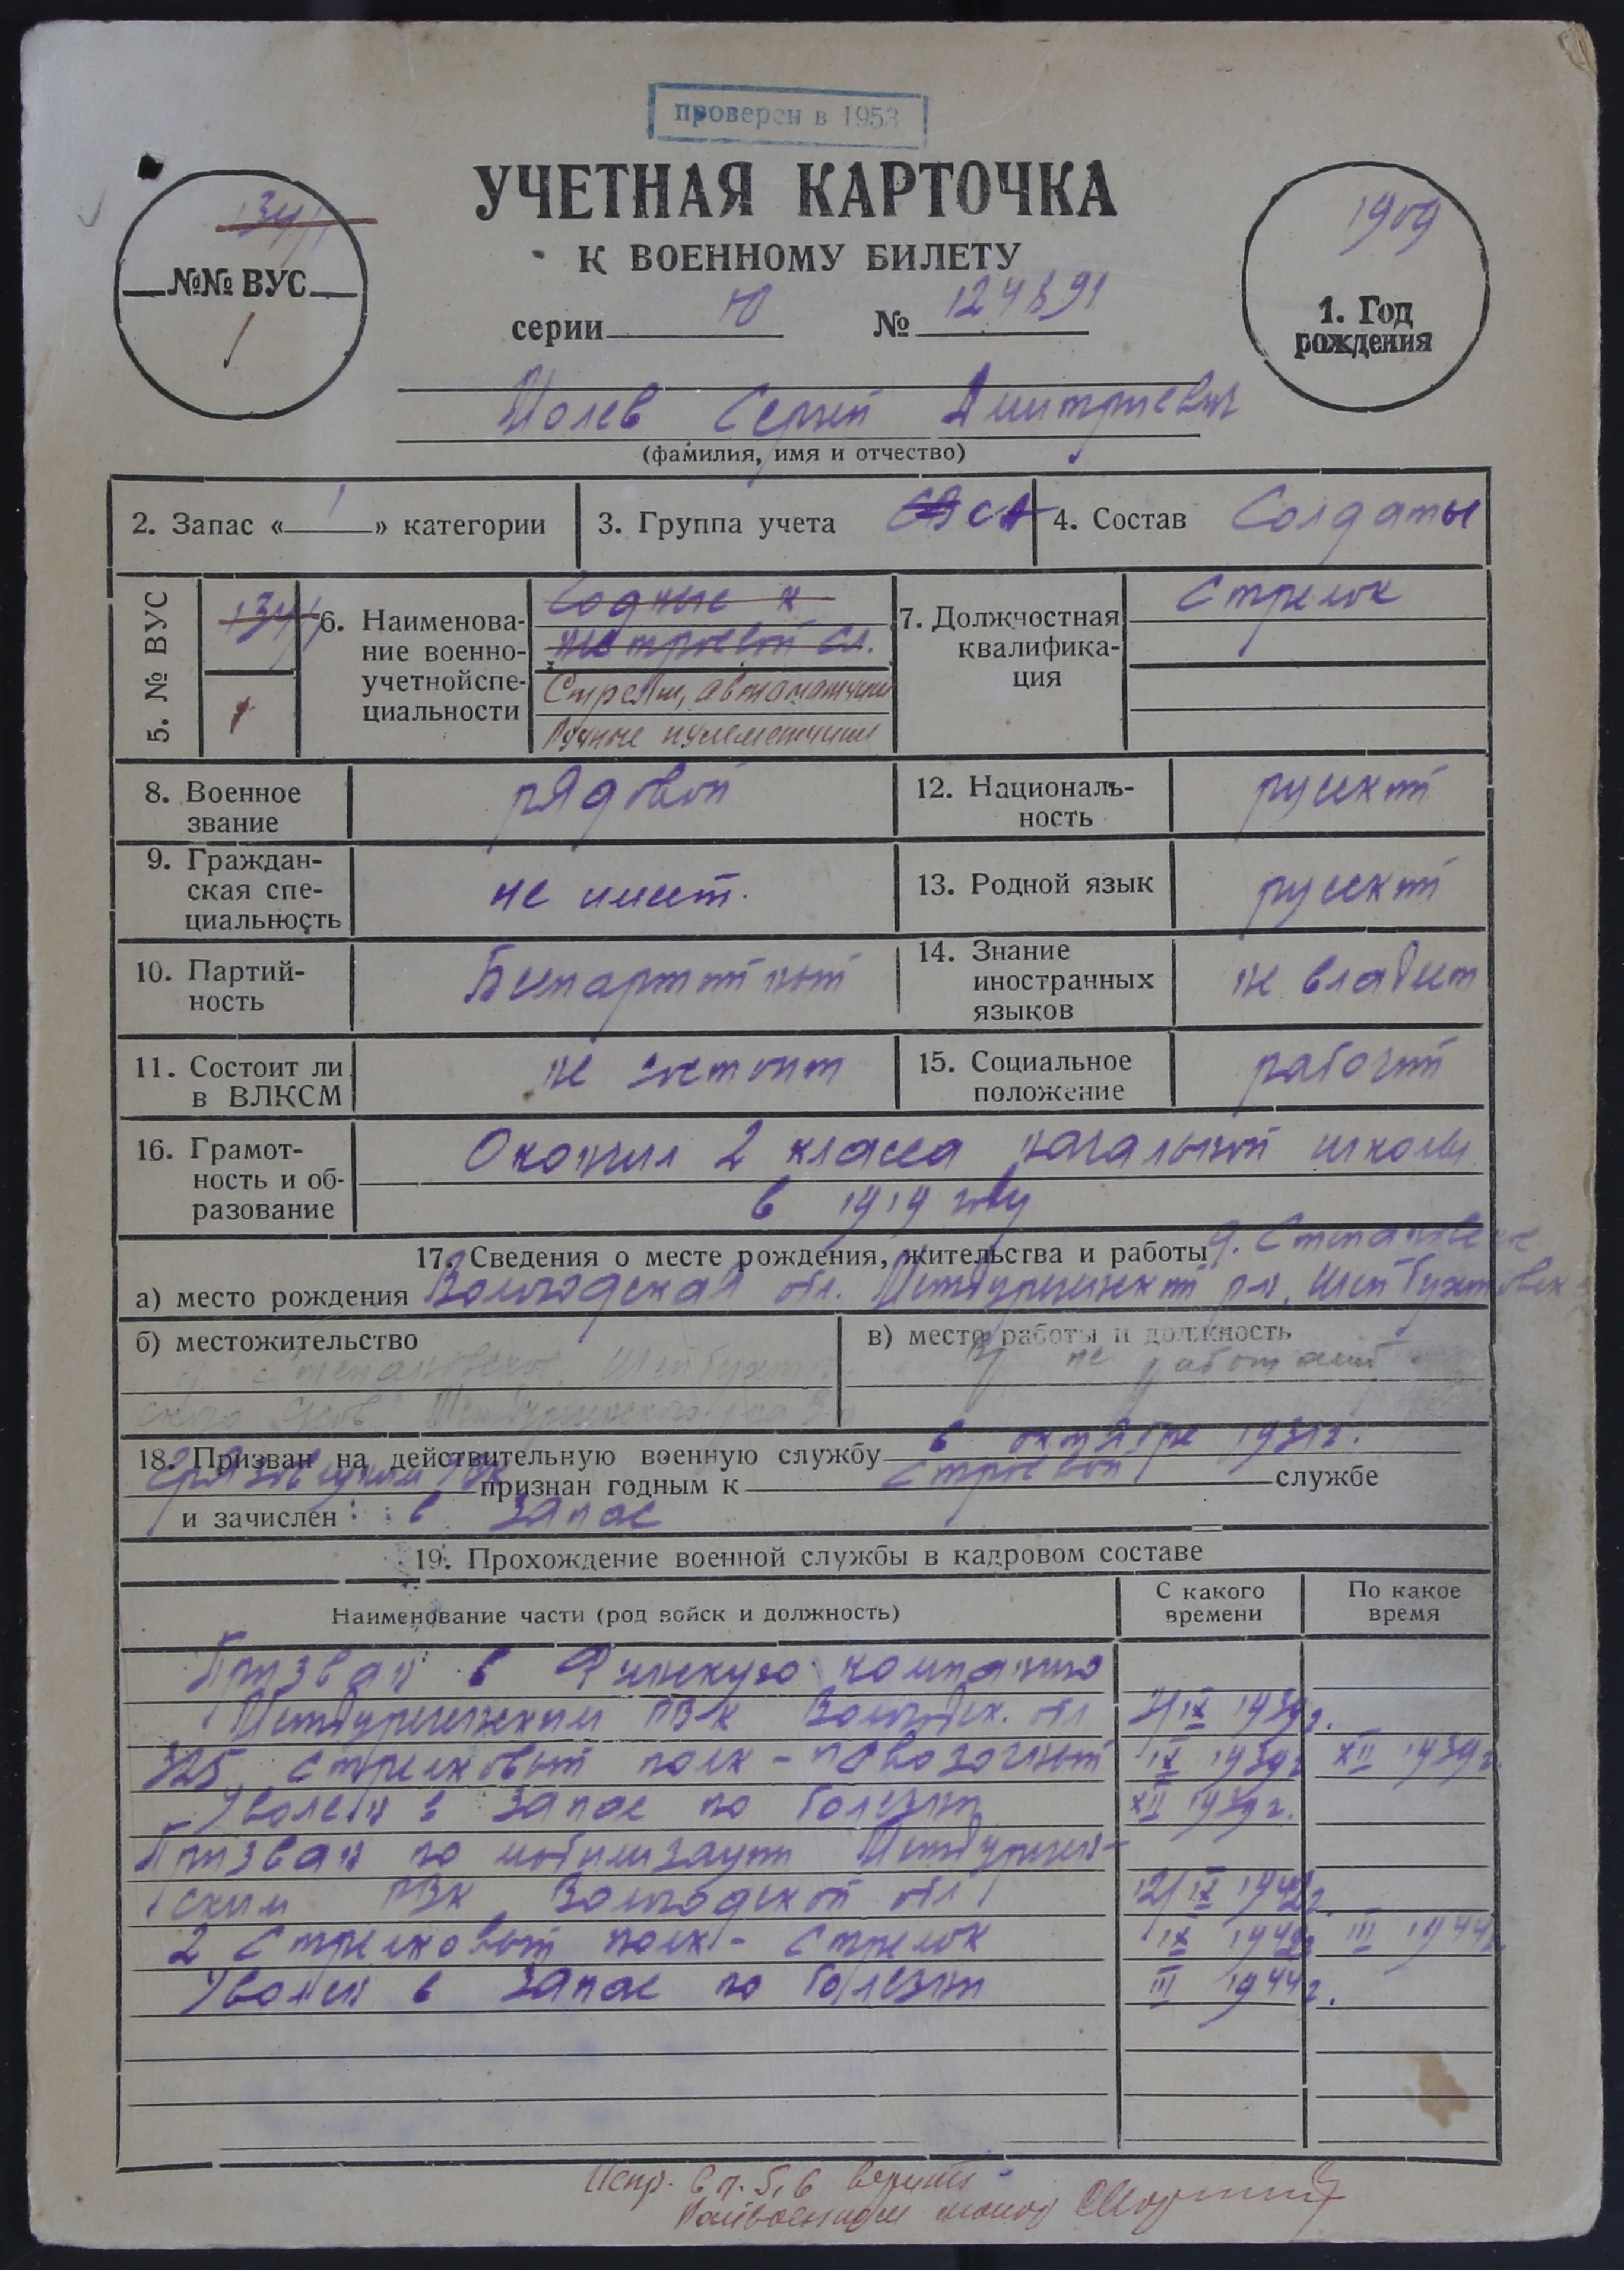 проверен в 1953
УЧЕТНАЯ КАРТОЧКА
К ВОЕННОМУ БИЛЕТУ
серии Ю № 124891
134/1
№№ ВУС
1
1909
1. Год
рождения
Сергей Дмитриевич
(фамилия, имя и отчество)
2. Запас « 1 » категории
3. Группа учета СА
4. Состав Солдаты
5. № ВУС
134/1
1
6. Наименова-
ние военно-
учетнойспе-
циальности
Годные к
нестроевой сл.
Стрелки, автоматчики
Ручные пулеметчики
7. Должностная
квалифика-
ция
Стрелок
8. Военное
звание
рядовой
12. Националь-
ность
русский
9. Граждан-
ская спе-
циальность
не имеет.
13. Родной язык
русский
10. Партий-
ность
Беспартийный
14. Знание
иностранных
языков
не владеет
11. Состоит ли
в ВЛКСМ
не состоит
15. Социальное
положение
рабочий
16. Грамот-
ность и об-
разование
Окончил 2 класса начальной школы
в 1919 году
17. Сведения о месте рождения, жительства и работы
д. Степановское
а) место рождения Вологодская обл. Междуреченский р-н,
б) местожительство
в) место работы и должность
не работает
18. Призван на действительную военную службу в октябре 1931г.
Грязовецким РВК признан годным к строевой службе
и зачислен в запас
19. Прохождение военной службы в кадровом составе
Наименование части (род войск и должность)
С какого
времени
По какое
время
Призван в Финскую компанию
Междуреченским РВК Вологодск. обл IX 1939г.
325 Стрелковый полк - повозочный IX 1939г XII 1939г.
Уволен в запас по болезни XII 1939г.
Призван по мобилизации Междуречен-
ским РВК Вологодской обл 12/IX 1942г.
2 Стрелковый полк - Стрелок IX 1942г III 1944г.
Уволен в запас по болезни III 1944г.
Испр. в п. 5, 6 верить
Райвоенком майор